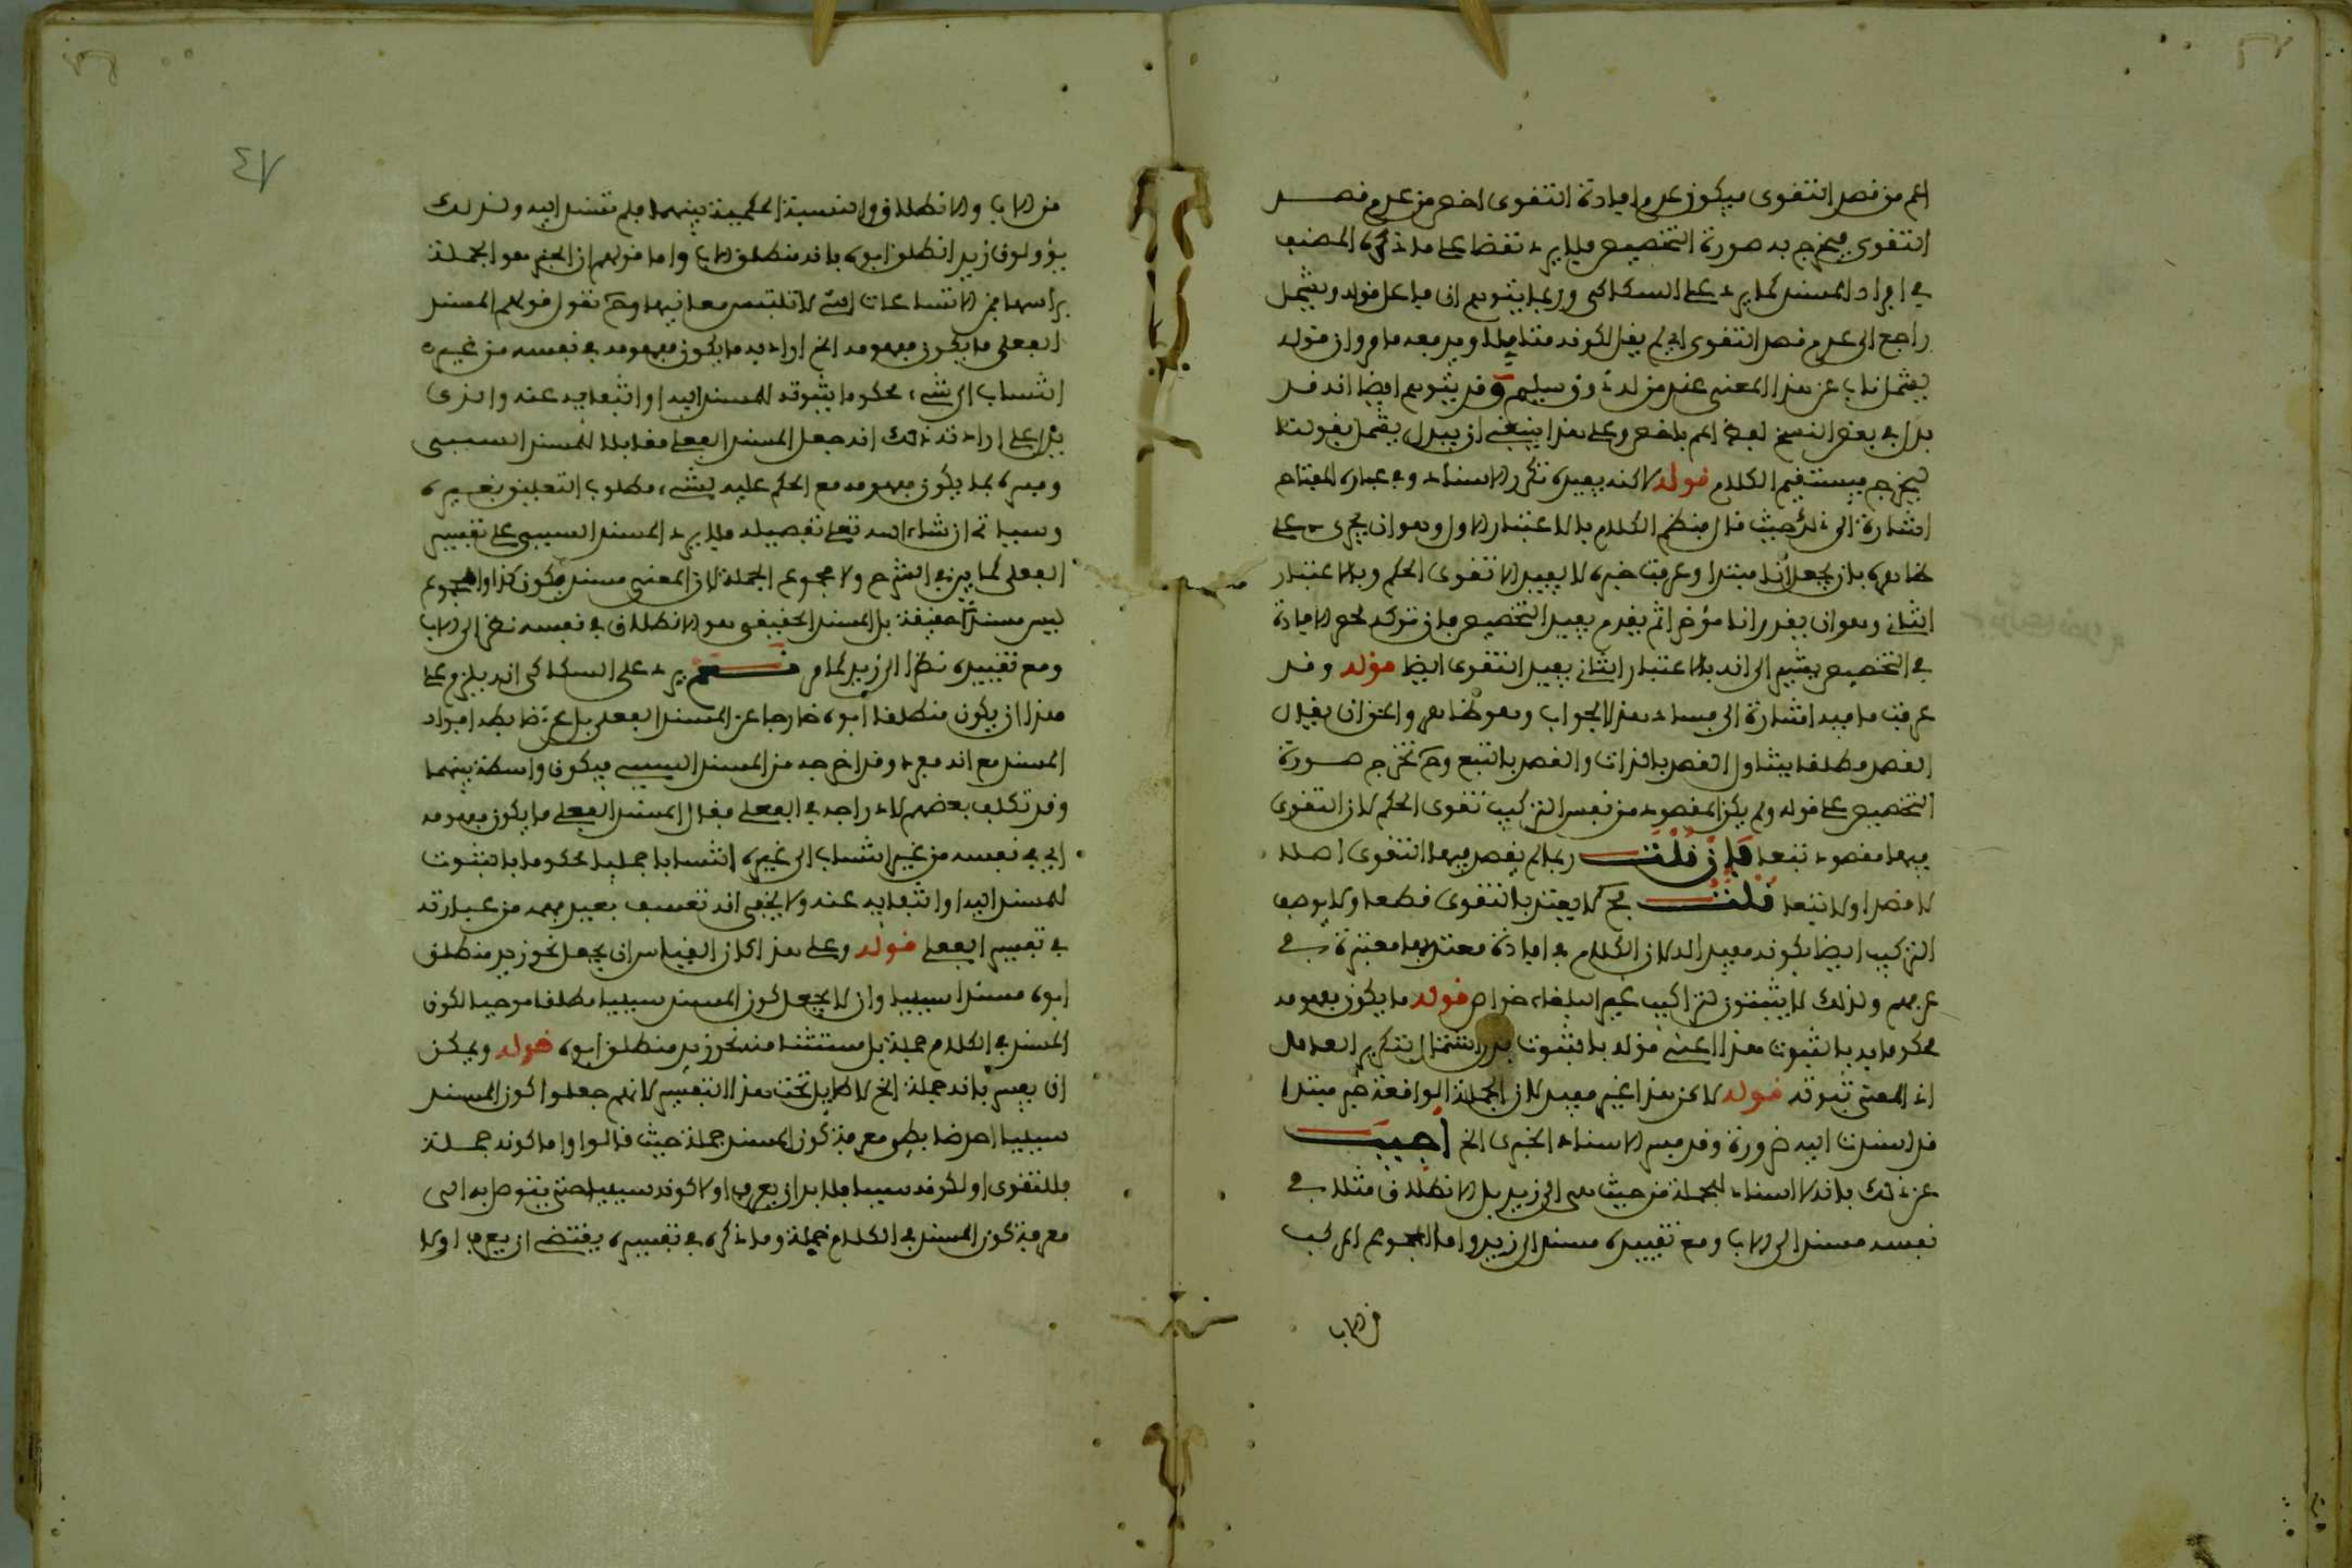 اعم من قصد التقوى فيكون عدم افادة التقوى اخص من عدم قصد
التقوى فيخرج به صورة التخصيص فلا يرد نقضا على ما ذكره المصنف
في افراد المسند كما يرد على السكاكي وربما يتوهم ان فاعل قوله ويشمل
راجع الى عدم قصد التقوى اي لم يقل لكونه متناولا وير بعد ما مر وان قوله
يشمل ناب عن هذا المعنى عند من له ذوق سليم وقد يتوهم ايضا انه قد
بدل في بعض النسخ لفظ اعم باخص وعلى هذا ينبغي ان يبدل يشمل بقولنا
ليخرج فيستقيم الكلام قوله لاكنه يفيده تكرر الاسناد وفي عبارة المفتاح
اشارة الى ذلك حيث قال فنظم الكلام بالاعتبار الاول وهو ان يجرى على
ظاهره بان يجعل انا مبتدا وعرفت خبره لا يفيد الا تقوى الحكم وبالاعتبار
الثاني وهو ان يقدر انا مؤخرا ثم يقدم يفيد التخصيص فان تركه لحصر الافادة
في التخصيص يشير الى انه بالاعتبار الثاني يفيد التقوى ايضا قوله وقد
عرفت ما فيه اشارة الى فساد هذا الجواب وهو ظاهر والحق ان يقال
القصد مطلقا يتناول القصد بالذات والقصد بالتبع وح تخرج صورة
التخصيص على قوله ولم يكن المقصود من نفس التركيب تقوى الحكم لان التقوى
فيها مقصود تبعا فان قلت ربما لم يقصد فيها التقوى اصلا
لا قصدا ولا تبعا قلت فح لا يعتد بالتقوى قطعا ولا يوصف
التركيب ايضا بكونه مفيدا له لان الكلام في افادة معتد بها معتبرة في
عرفهم ولذلك لا يثبتون لتراكيب غير البلغاء خواص قوله ما يكون مفهومه
محكوما به بالثبوت هذا اعني قوله بالثبوت بدل اشتمال بتكرير العامل
اذ المعنى ثبوته قوله لاكن هذا غير مفيد لان الجملة الواقعة خبر مبتدا
قد اسندت اليه ضرورة وقد فسر الاسناد الخبرى الخ اجيب
عن ذلك بانه لا اسناد للجملة من حيث هى الى زيد بل الانطلاق مثلا في
نفسه مسند الى الاب ومع تقييده مسند الى زيد واما المجموع المركب
من الاب
من الاب والانطلاق والنسبة الحكمية بينهما فلم تسند اليه ولذلك
يؤولون زيد انطلق ابوه بانه منطلق الاب واما قولهم ان الخبر هو الجملة
براسها فمن الاتساعات التي لا تلتبس معانيها وح نقول قولهم المسند
الفعلى ما يكون مفهومه الخ اراد به ما يكون مفهومه في نفسه من غير
انتساب الى شيء محكوما بثبوته للمسند اليه او انتفايه عنه والذى
يدل على ارادته ذلك انه جعل المسند الفعلى مقابلا للمسند السببى
وفسره بما يكون مفهومه مع الحكم عليه بشيء مطلوب التعليق بغيره
وسياتي ان شاء الله تعلى تفصيله فلا يرد المسند السببى على تفسير
الفعلى كما بين في الشرح ولا مجموع الجملة لان المعنى مسند يكون كذا والمجموع
ليس مسندا حقيقة بل المسند الحقيقى هو الانطلاق في نفسه نظرا الى الاب
ومع تقييده نظرا الى زيد كما مر نعم يرد على السكاكى انه يلزم على
هذا ان يكون منطلقا ابوه خارجا عن المسند الفعلى بل عن ضابطة افراد
المسند مع انه مفرد وقد اخرجه من المسند السببى فيكون واسطة بينهما
وقد تكلف بعضهم لادراجه في الفعلى فقال المسند الفعلى ما يكون مفهومه
اى في نفسه من غير انتساب الى غيره انتسابا جمليا محكوما بالثبوت
للمسند اليه او انتفايه عنه ولا يخفى انه تعسف بعيد فهمه من عبارته
في تفسير الفعلى قوله وعلى هذا كان القياس ان يجعل نحو زيد منطلق
ابوه مسندا سببيا وان لا يجعل كون المسند سببيا مطلقا موجبا لكون
المسند في الكلام جملة بل مستثنا منه نحو زيد منطلق ابوه قوله ويمكن
ان يفسر بانه جملة الخ لا طايل تحت هذا التفسير لانهم جعلوا كون المسند
سببيا احد ضابطى معرفة كون المسند جملة حيث قالوا واما كونه جملة
فللتقوى او لكونه سببيا فلا بد ان يعرف اولا كونه سببيا حتى يتوصل به الى
معرفة كون المسند في الكلام جملة وما ذكره في تفسيره يقتضي ان يعرف اولا